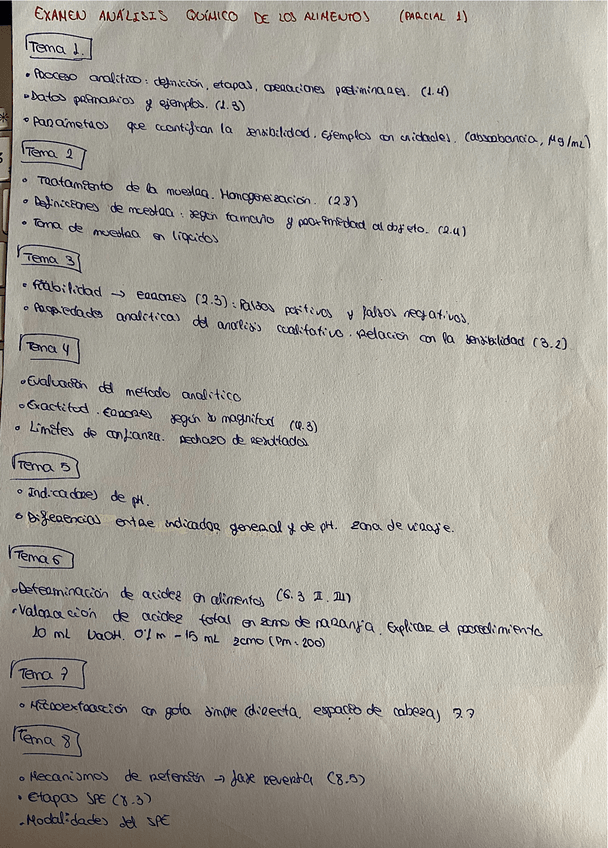 EXAMEN ANÁLISIS QUÍMICO DE LOS ALIMENTOS (PARCIAL 1)
Tema 1.
• Proceso analítico: definición, etapas, operaciones preliminares. (1.4)
• Datos primarios y ejemplos. (1.3)
• Parámetros que cuantifican la sensibilidad. Ejemplos con unidades. (absorbancia, µg/mL)
Tema 2
• Tratamiento de la muestra. Homogeneización. (2.8)
• Definiciones de muestra: según tamaño y proximidad al objeto. (2.4)
• Toma de muestra en líquidos
Tema 3
• Fiabilidad → errores (2.3): Falsos positivos y falsos negativos.
• Propiedades analíticas del análisis cualitativo. Relación con la sensibilidad (3.2)
Tema 4
• Evaluación del método analítico
• Exactitud. Errores según su magnitud (4.3)
• Límites de confianza. Rechazo de resultados
Tema 5
• Indicadores de pH.
• Diferencias entre indicador general y de pH. Zona de viraje.
Tema 6
• Determinación de acidez en alimentos (6.3 II. III)
• Valoración de acidez total en zumo de naranja. Explicar el procedimiento
10 mL NaOH. 0'1 M - 15 mL zumo (Pm: 200)
Tema 7
• Microextracción con gota simple (directa, espacio de cabeza) 7.7
Tema 8
• Mecanismos de retención → fase reversa (8.5)
• Etapas SPE (8.3)
• Modalidades del SPE